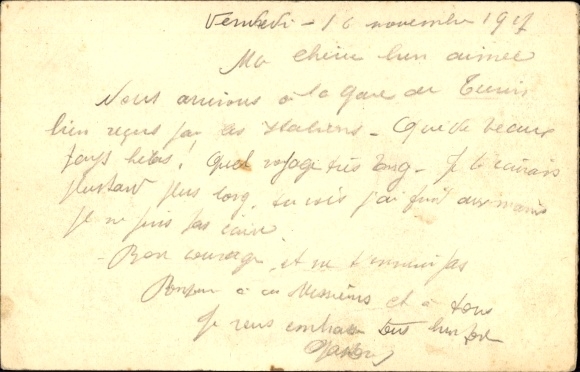 Vendredi - 16 novembre 1917
Ma chérie bien aimée
Nous arrivons à la gare de Turin
bien reçus par les Italiens - Quel beau
pays hélas ! Quel voyage très long - Je t'écrirais
plus tard plus long, tu vois j'ai froid aux mains
je ne puis pas écrire.
Bon courage et ne t'ennuie pas
Bonjour à ces Messieurs et à tous
Je vous embrasse tous bien fort